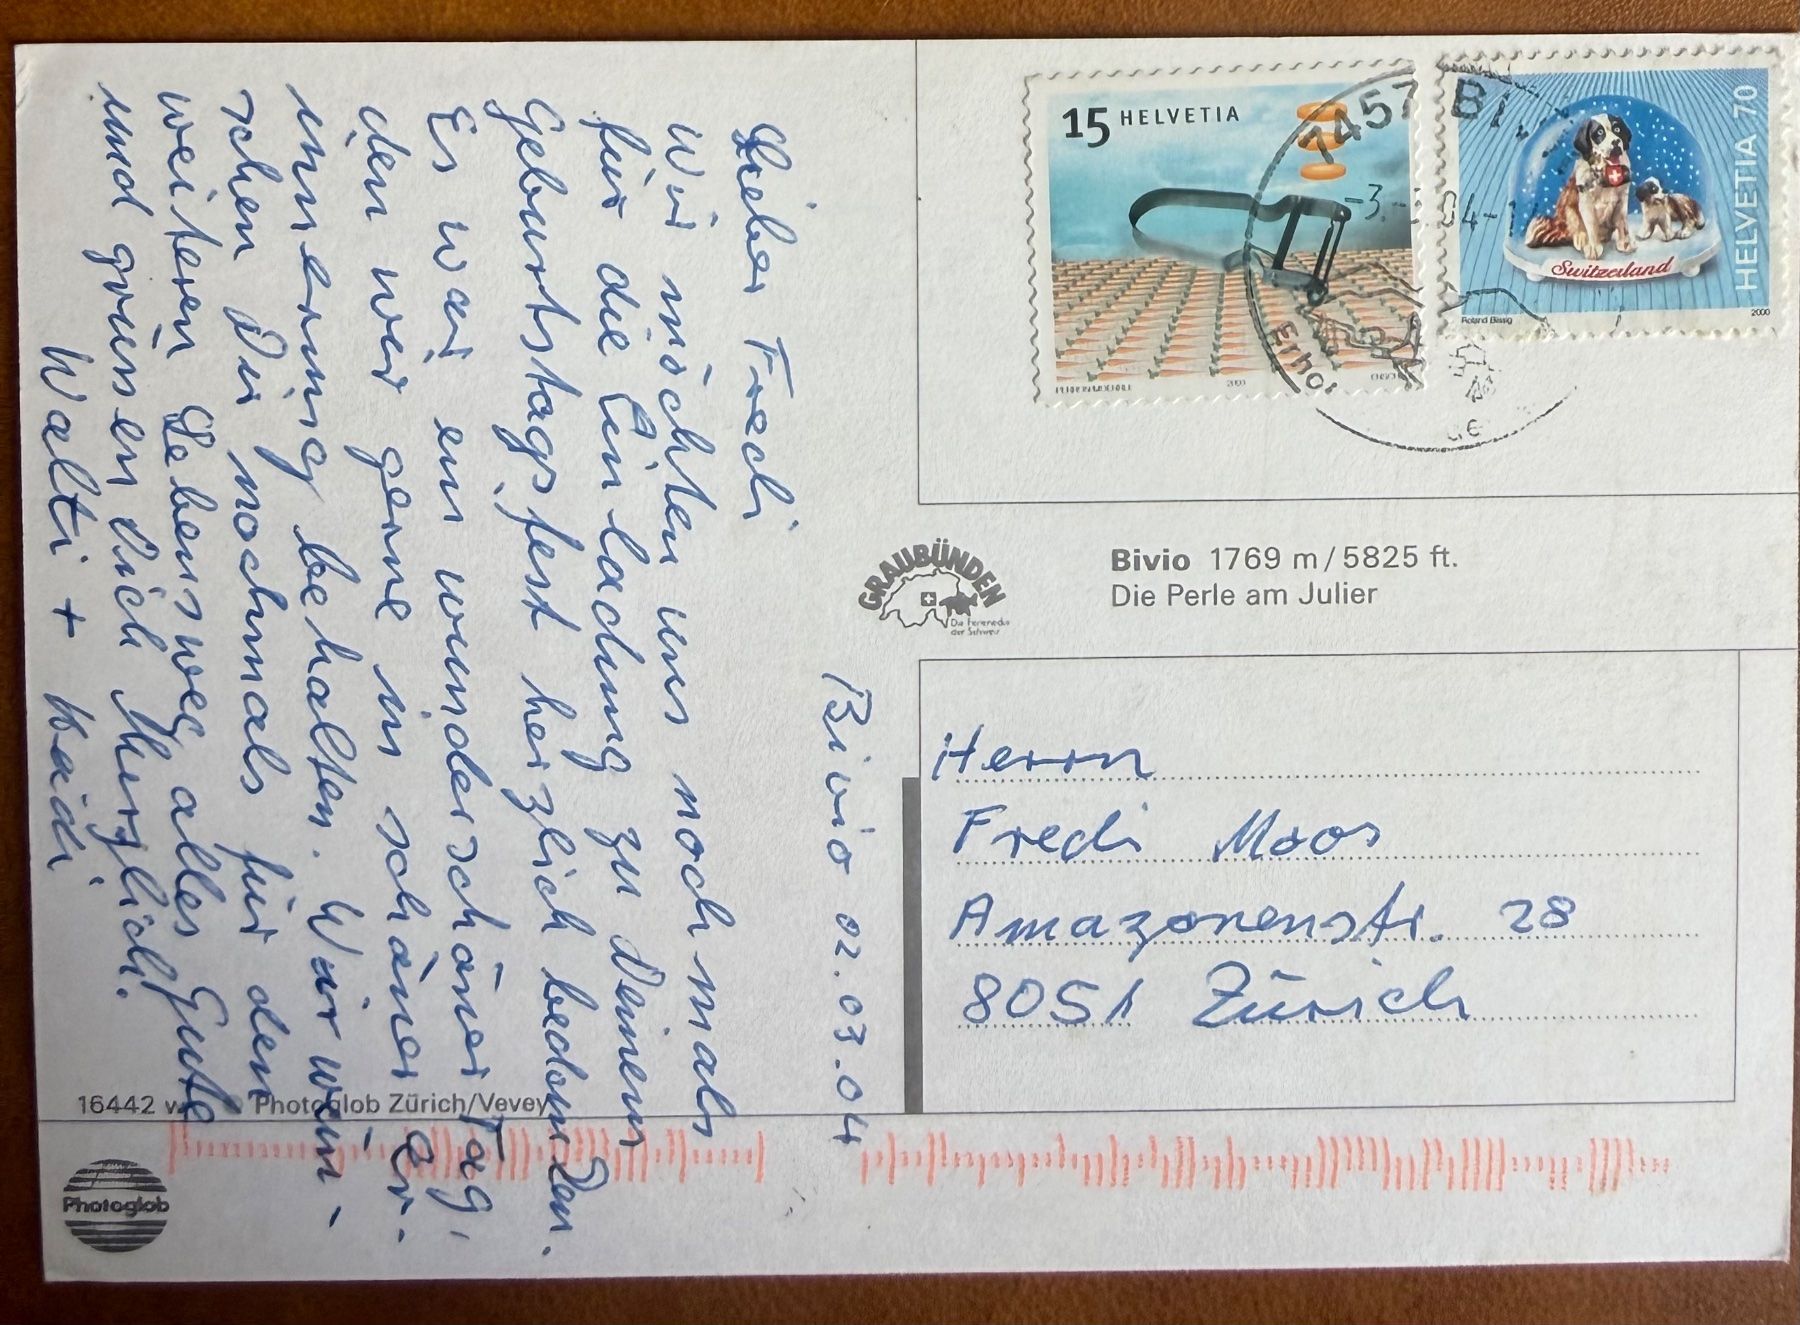 Bivio 02.03.04
Lieber Fredi
Wir möchten uns nochmals
für die Einladung zu Deinem
Geburtstagsfest herzlich bedanken.
Es war ein wunderschöner Tag,
den wir gerne in schöner Er-
innerung behalten. Wir wün-
schen Dir nochmals für den
weiteren Lebensweg alles Gute
und grüssen Dich herzlich.
Walti +
15 HELVETIA
HELVETIA 70
Switzerland
Roland Bissig
2000
7457
-3.
04-
GRAUBÜNDEN
Die Ferienecke
der Schweiz
Bivio 1769 m/5825 ft.
Die Perle am Julier
Herrn
Fredi Moos
Amazonenstr. 28
8051 Zürich
16442
Photoglob Zürich/Vevey
Photoglob